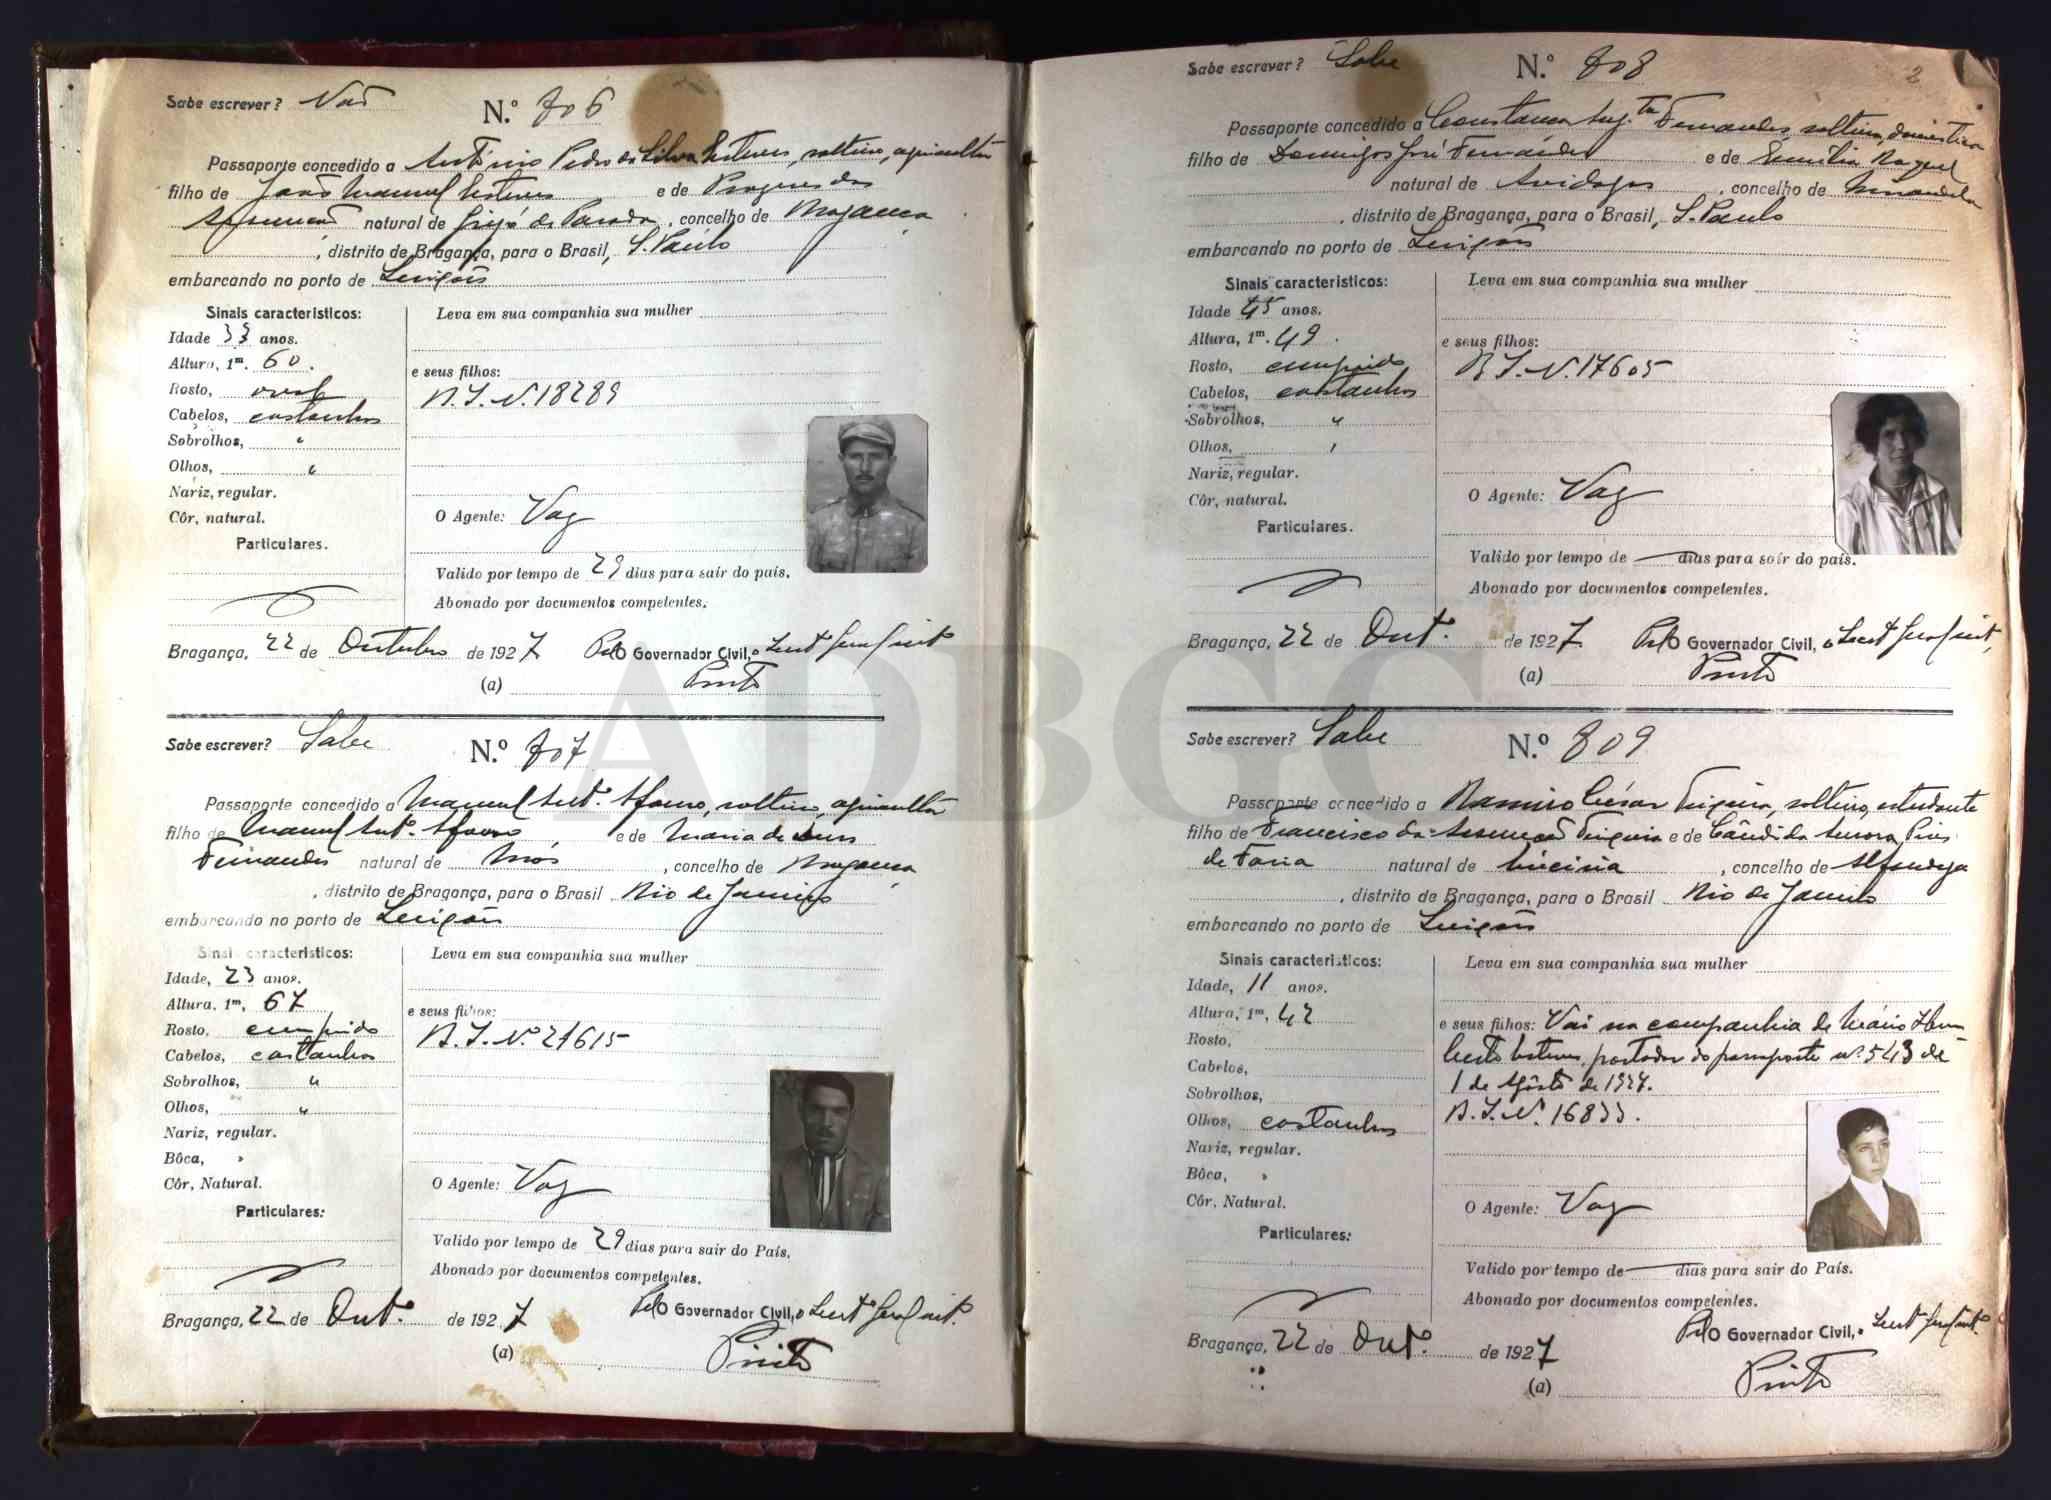 Sabe escrever? Não
N.º 806
Passaporte concedido a António Pedro da Silva Esteves, solteiro, agricultor
filho de João Manuel Esteves e de Prazeres da
Assunção natural de Grijó de Parada, concelho de Bragança
, distrito de Bragança, para o Brasil, S. Paulo
embarcando no porto de Leixões
Sinais caracteristicos:
Idade 33 anos.
Altura, 1m. 60.
Rosto, oval
Cabelos, castanhos
Sobrolhos, "
Olhos, "
Nariz, regular.
Côr, natural.
Particulares.
Leva em sua companhia sua mulher
e seus filhos:
B. I. N. 18289
O Agente: Vaz
Valido por tempo de 29 dias para sair do país.
Abonado por documentos competentes.
Bragança, 22 de Outubro de 1927 Pelo Governador Civil, o
(a) Pinto
Sabe escrever? Sabe
N.º 807
Passaporte concedido a Manuel Antº. Afonso, solteiro, agricultor
filho de Manuel Antº. Afonso e de Maria de
Fernandes natural de Mós, concelho de Bragança
, distrito de Bragança, para o Brasil Rio de Janeiro
embarcando no porto de Leixões
Sinais caracteristicos:
Idade, 23 anos.
Altura, 1m, 67
Rosto, comprido
Cabelos, castanhos
Sobrolhos, "
Olhos, "
Nariz, regular.
Bôca, »
Côr, Natural.
Particulares:
Leva em sua companhia sua mulher
e seus filhos:
B. I. Nº 21615
O Agente: Vaz
Valido por tempo de 29 dias para sair do País.
Abonado por documentos competentes.
Bragança, 22 de Outº. de 1927 Pelo Governador Civil, o
(a) Pinto
2
Sabe escrever? Sabe
N.º 808
Passaporte concedido a Constança Augta Fernandes, solteira, doméstica
filho de Domingos José Fernandes e de Emília Raquel
natural de Avidagos, concelho de Mirandela
, distrito de Bragança, para o Brasil, S. Paulo
embarcando no porto de Leixões
Sinais caracteristicos:
Idade 45 anos.
Altura, 1m. 49.
Rosto, comprido
Cabelos, castanhos
Sobrolhos, "
Olhos, "
Nariz, regular.
Côr, natural.
Particulares.
Leva em sua companhia sua mulher
e seus filhos:
B. I. N. 17605
O Agente: Vaz
Valido por tempo de — dias para sair do país.
Abonado por documentos competentes.
Bragança, 22 de Outº. de 1927 Pelo Governador Civil, o
(a) Pinto
Sabe escrever? Sabe
N.º 809
Passaporte concedido a Ramiro César Trigueira, solteiro, estudante
filho de Francisco da Assumção e de Cândida Aurora Pires
de Faria natural de , concelho de Alfandega
, distrito de Bragança, para o Brasil Rio de Janeiro
embarcando no porto de Leixões
Sinais caracteristicos:
Idade, 11 anos.
Altura, 1m, 42
Rosto,
Cabelos,
Sobrolhos,
Olhos, castanhos
Nariz, regular.
Bôca, »
Côr, Natural.
Particulares:
Leva em sua companhia sua mulher
e seus filhos: Vai na companhia de Mário Hum
berto Esteves, portador do passaporte nº. 543 de
1 de Agôsto de 1927.
B. I. Nº. 16833.
O Agente: Vaz
Valido por tempo de — dias para sair do País.
Abonado por documentos competentes.
Bragança, 22 de Outº. de 1927 Pelo Governador Civil, o
(a) Pinto
ADBGC